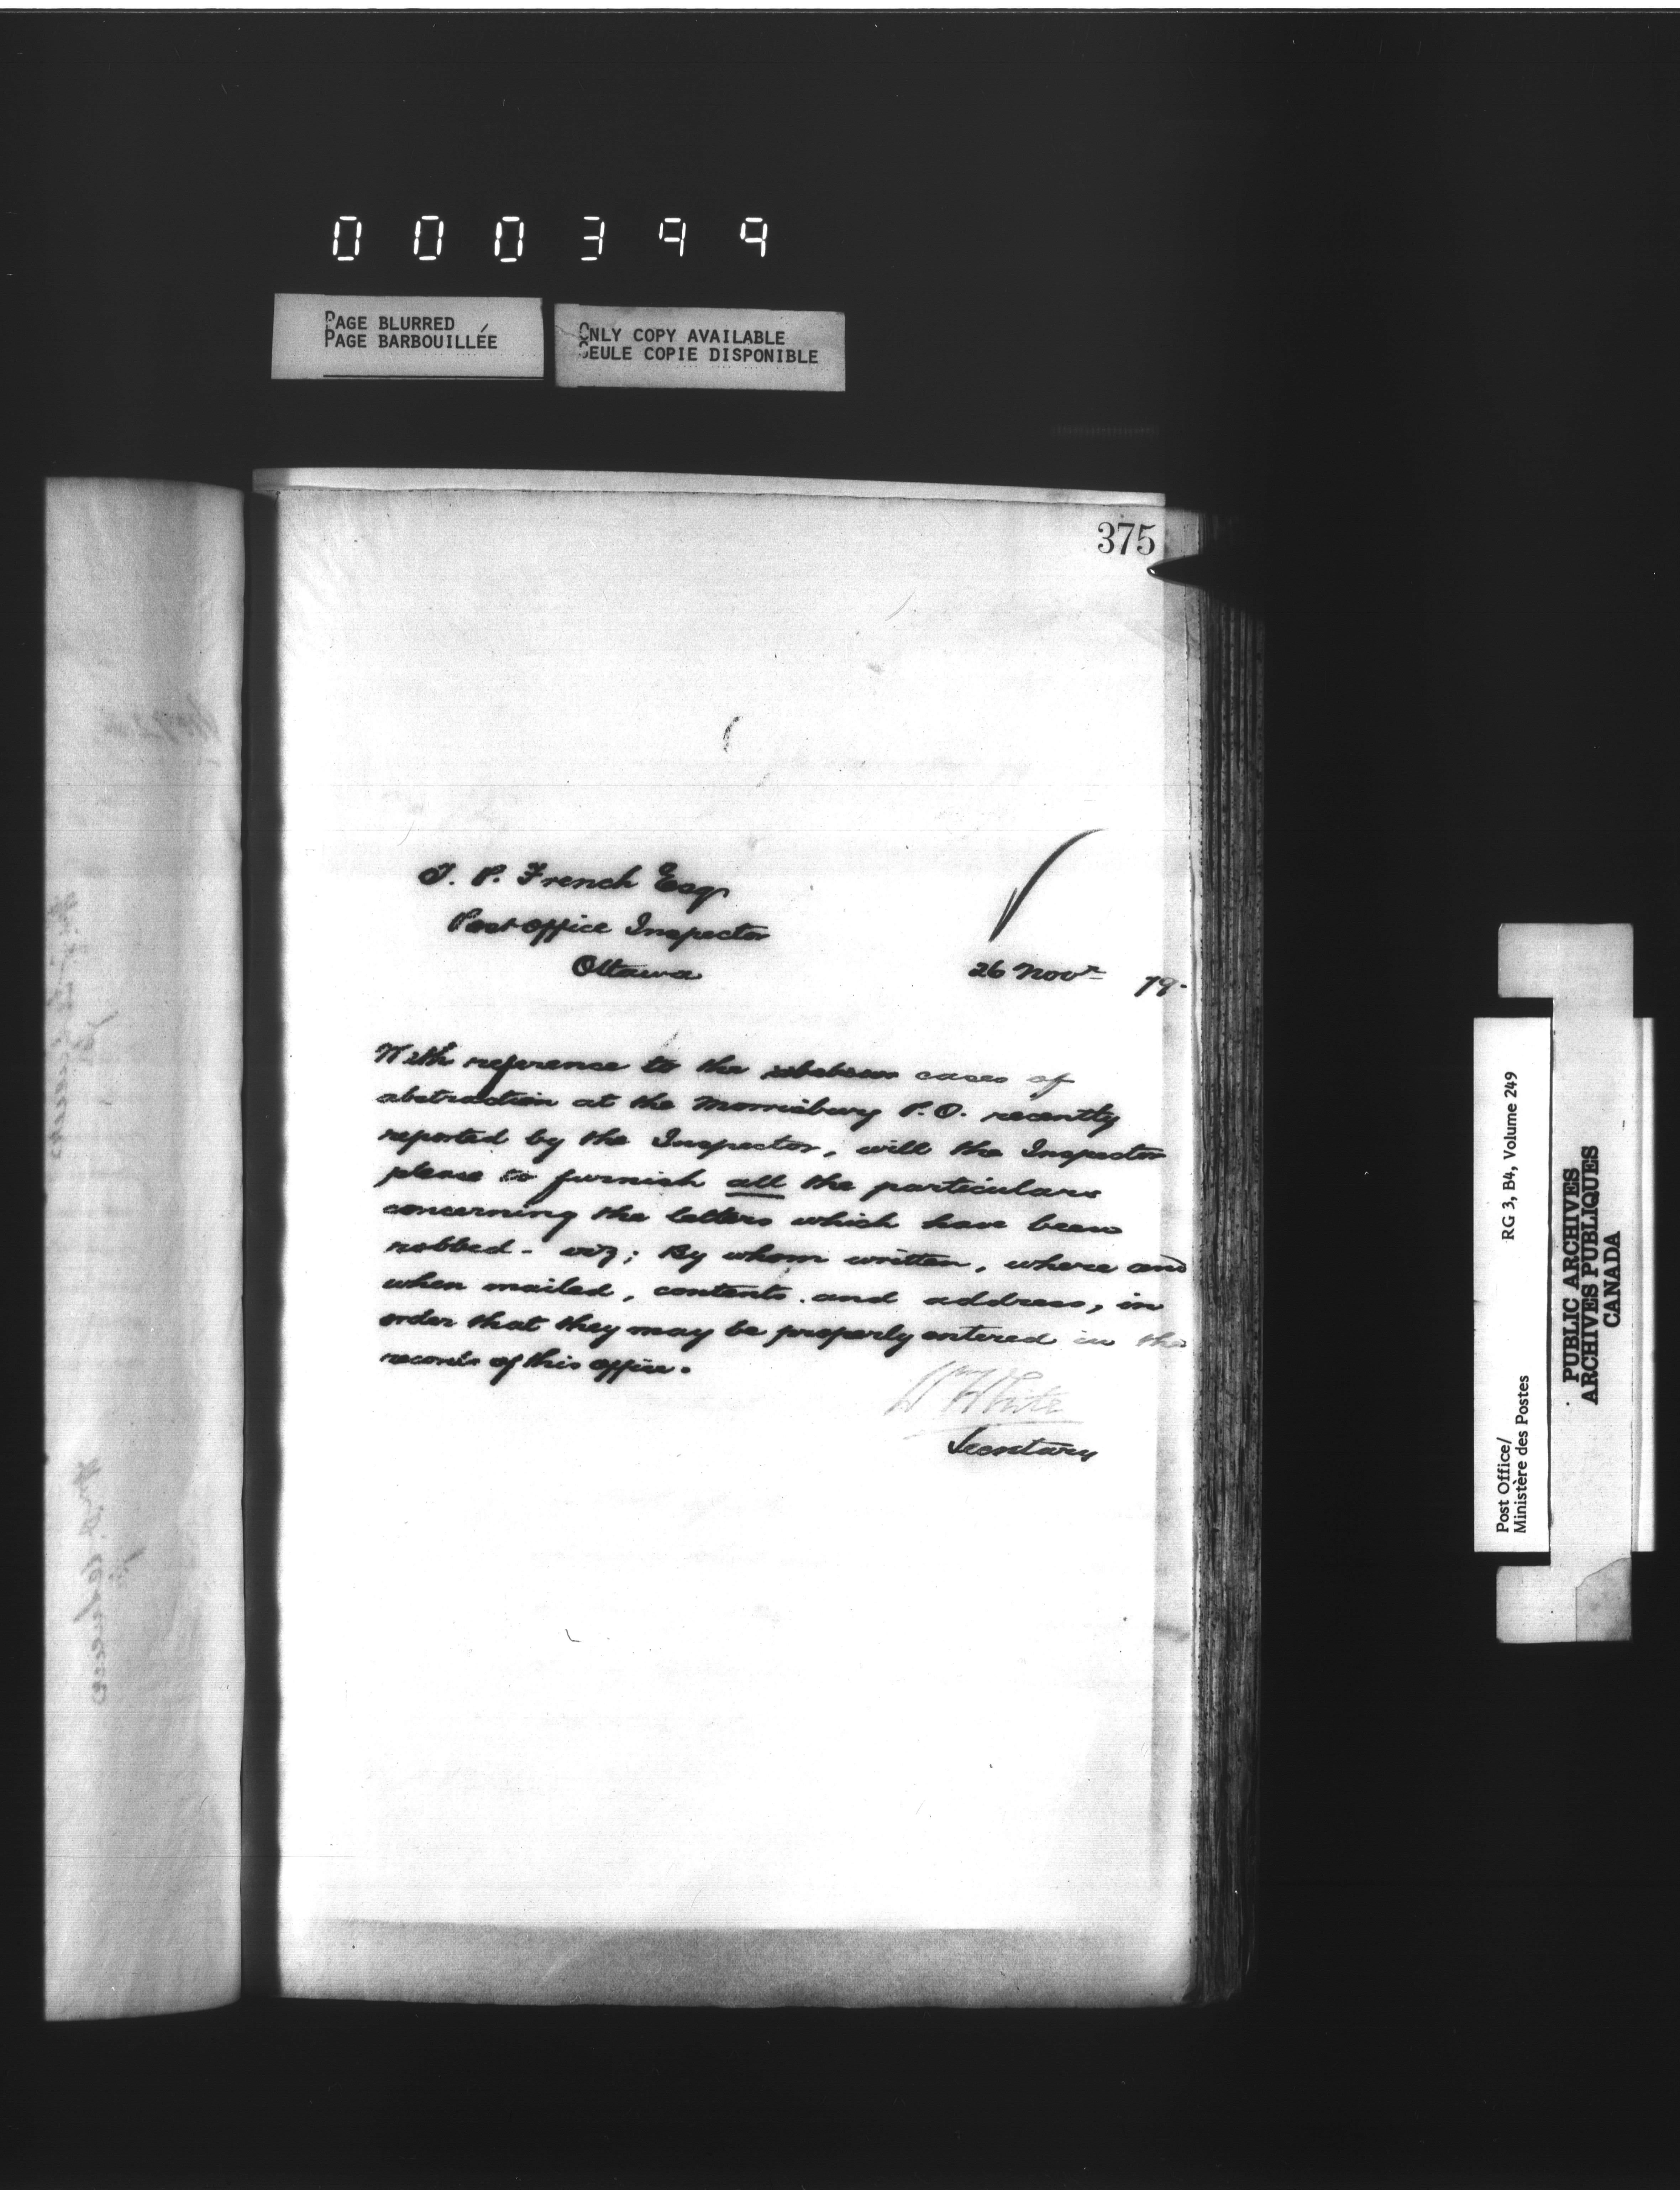 000399
PAGE BLURRED
PAGE BARBOUILLÉE
ONLY COPY AVAILABLE
SEULE COPIE DISPONIBLE
375
T. P. French Esq
Post Office Inspector
Ottawa
26 Novr 79.
With reference to the cases of
abstraction at the Morrisburg P.O. recently
reported by the Inspector, will the Inspector
please to furnish all the particulars
concerning the letters which have been
robbed - viz; By whom written, where and
when mailed, contents and address, in
order that they may be properly entered in the
records of this office.
W White
Secretary
Post Office/
Ministère des Postes
RG 3, B4, Volume 249
PUBLIC ARCHIVES
ARCHIVES PUBLIQUES
CANADA